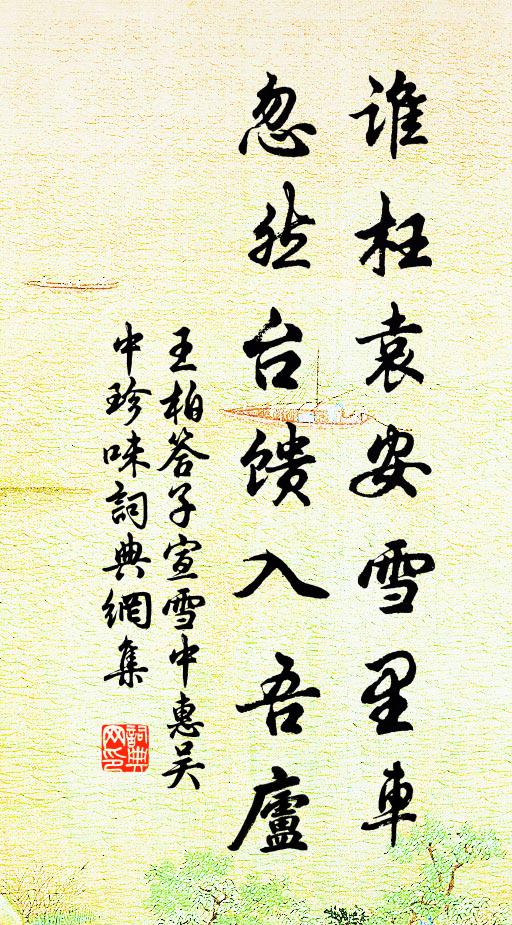 谁枉袁安雪里車
忽然台馈入吾廬
王柏答子宣雪中惠吴
中珍味詞典網集
詞典网印